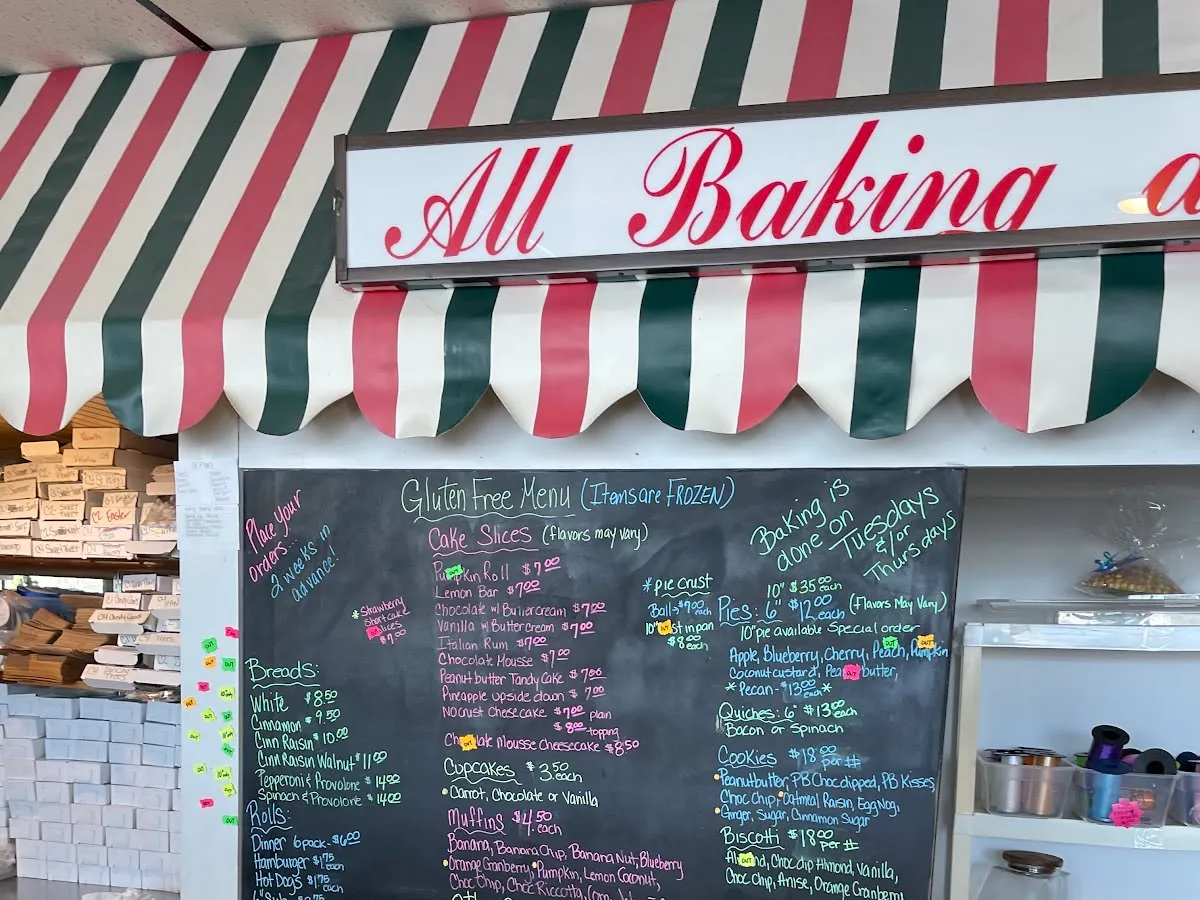 All Baking a
Gluten Free Menu (Items are FROZEN)
Place Your
orders...
2 weeks in
advance!
Baking is
done on
Tuesdays
&/or
Thursdays
Cake Slices (flavors may vary)
Pumpkin Roll $7.00
OUT
Lemon Bar $7.00
Chocolate w/ Buttercream $7.00
Vanilla w/ Buttercream $7.00
Italian Rum $7.00
Chocolate Mousse $7.00
Peanut butter Tandy Cake $7.00
Pineapple upside down $7.00
No crust Cheesecake $7.00 plain
$8.00 topping
Chocolate Mousse Cheesecake $8.50
OUT
* Strawberry
Shortcake
Slices
$7.00
Cupcakes $3.50 each
Carrot, Chocolate or Vanilla
Muffins $4.50 each
Banana, Banana Chip, Banana Nut, Blueberry
Orange Cranberry, Pumpkin, Lemon Coconut,
Choc Chip, Choc Riccotta,
Breads:
White $8.50
Cinnamon $9.50
Cinn Raisin $10.00
Cinn Raisin Walnut $11.00
Pepperoni & Provolone $14.00
Spinach & Provolone $14.00
Rolls:
Dinner 6 pack - $6.00
Hamburger $1.75 each
Hot Dogs $1.75 each
* pie crust
Ball - $7.00 each
10" crust in pan
OUT
$8.00 each
10" $35.00 each
Pies: 6" $12.00 each (Flavors May Vary)
10" pie available Special order
Apple, Blueberry, Cherry, Peach, Pumpkin
OUT
OUT
Coconut custard, Peanut butter,
OUT
* Pecan - $13.00 each *
Quiches: 6" $13.00 each
Bacon or Spinach
Cookies $18.00 per #
Peanutbutter, PB Choc dipped, PB Kisses,
Choc Chip, Oatmeal Raisin, Egg Nog,
Ginger, Sugar, Cinnamon Sugar
Biscotti $18.00 per #
Almond, Choc dip Almond, Vanilla,
OUT
Choc Chip, Anise, Orange Cranberry